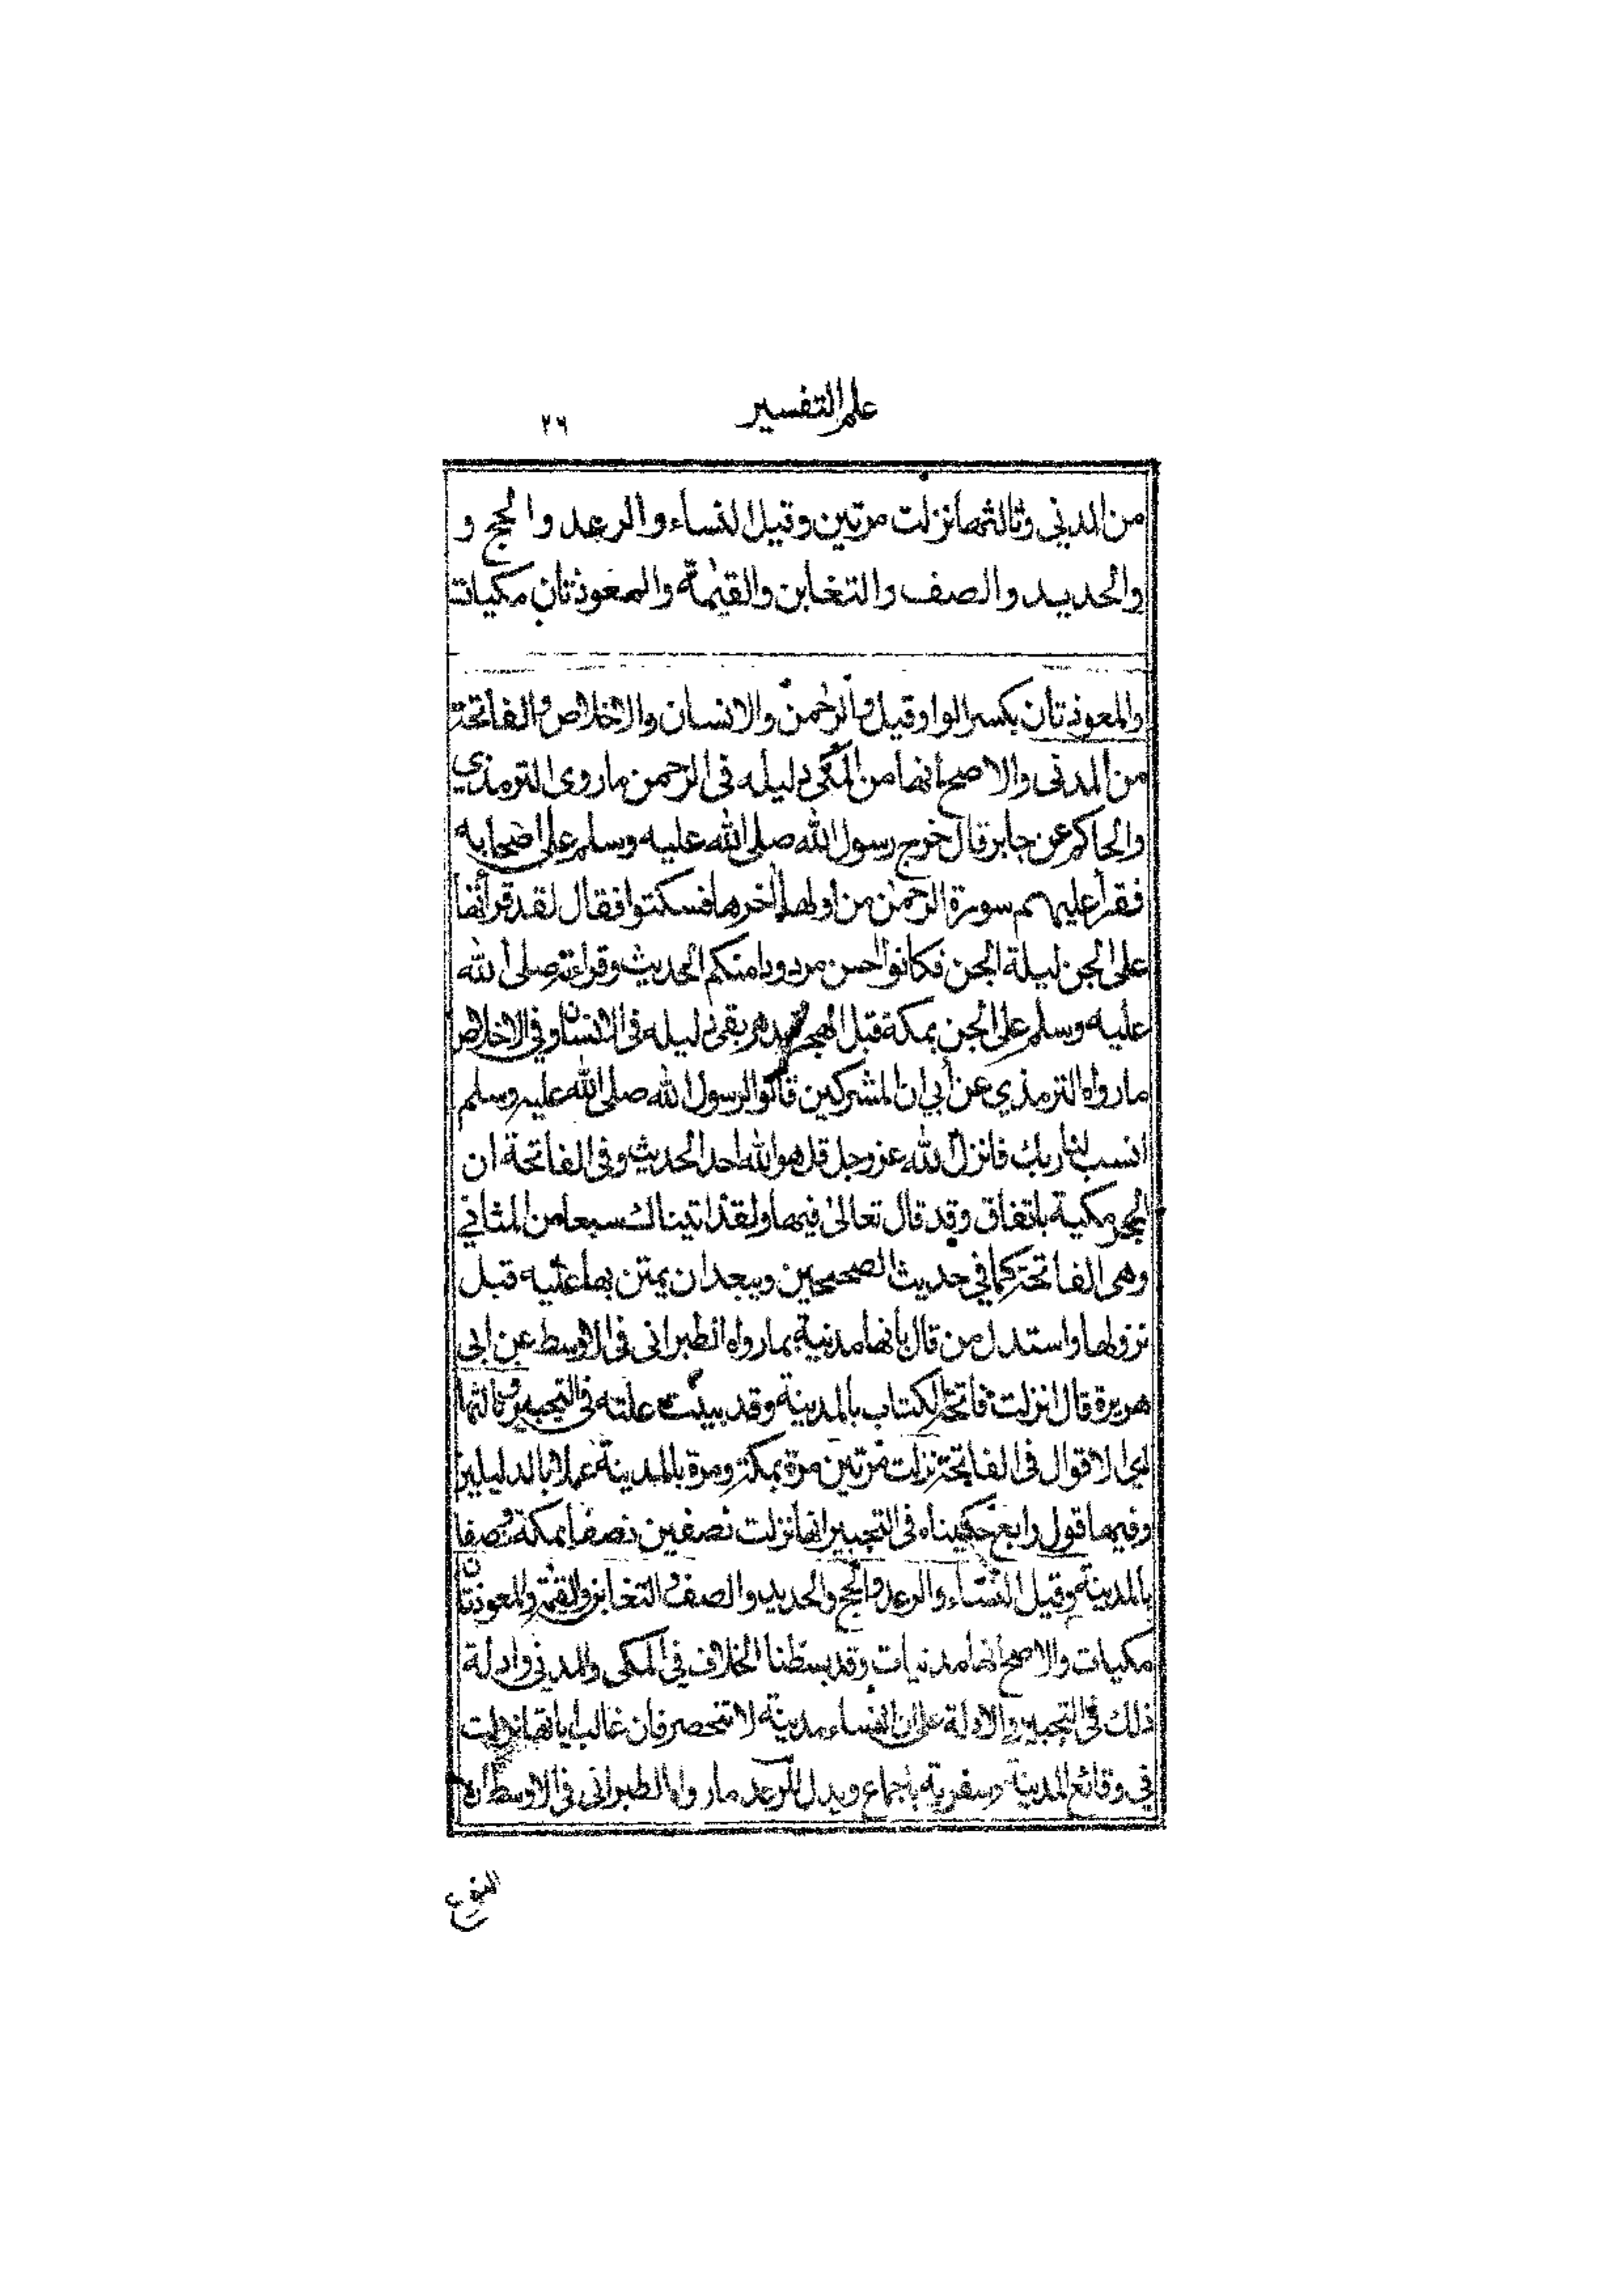 علم التفسير
٢٦
من المدني وثالثها نزلت مرتين وقيل النساء والرعد والحج و
والحديد والصف والتغابن والقيٰمة والمعوذتان مكيات
والمعوذتان بكسر الواو وقيل والرحٰمن والانسان والاخلاص والفاتحة
من المدنى والاصح انها من المكى دليله فى الرحمن ما روى الترمذي
والحاكم عن جابر قال خرج رسول الله صلى الله عليه وسلم على اصحابه
فقرأ عليهم سورة الرحمٰن من اولها لآخرها فسكتوا فقال لقد قرأتها
على الجن ليلة الجن فكانوا احسن مردودا منكم الحديث وقراءته صلى الله
عليه وسلم على الجن بمكة قبل الهجرة بدهر بقى دليله فى الانسان وفي الاخلاص
ما رواه الترمذي عن أبي ان المشركين قالوا لرسول الله صلى الله عليه وسلم
انسب لنا ربك فانزل الله عز وجل قل هو الله احد الحديث وفى الفاتحة ان
الحجر مكية باتفاق وقد قال تعالى فيها ولقد اتيناك سبعا من المثاني
وهى الفاتحة كما في حديث الصحيحين ويبعد ان يمتن بها عليه قبل
نزولها واستدل من قال بانها مدنية بما رواه الطبرانى فى الاوسط عن ابى
هريرة قال انزلت فاتحة الكتاب بالمدينة وقد بينت علته فى التحبير وثالثها
اى الاقوال فى الفاتحة نزلت مرتين مرة بمكة ومرة بالمدينة عملا بالدليلين
وفيها قول رابع حكيناه فى التحبير انها نزلت نصفين نصفا بمكة ونصفا
بالمدينة وقيل النساء والرعد والحج والحديد والصف والتغابن والقيمة والمعوذتان
مكيات والاصح انها مدنيات وقد بسطنا الخلاف في المكى والمدني وادلة
ذلك فى التحبير والادلة على ان النساء مدينة لا تنحصر فان غالب اياتها نزلت
في وقائع المدينة وسفرية باجماع ويدل للرعد ما رواه الطبرانى فى الاوسط ان